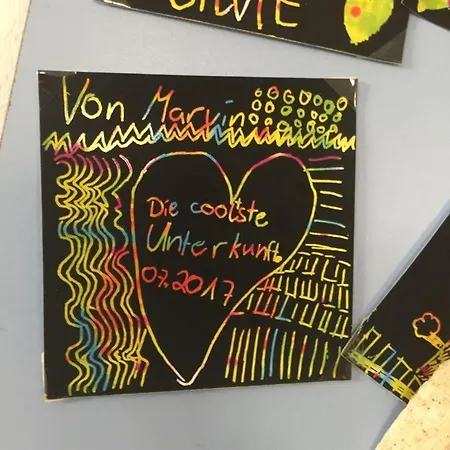 Von Marvin
Die coolste
Unterkunft
07.2017